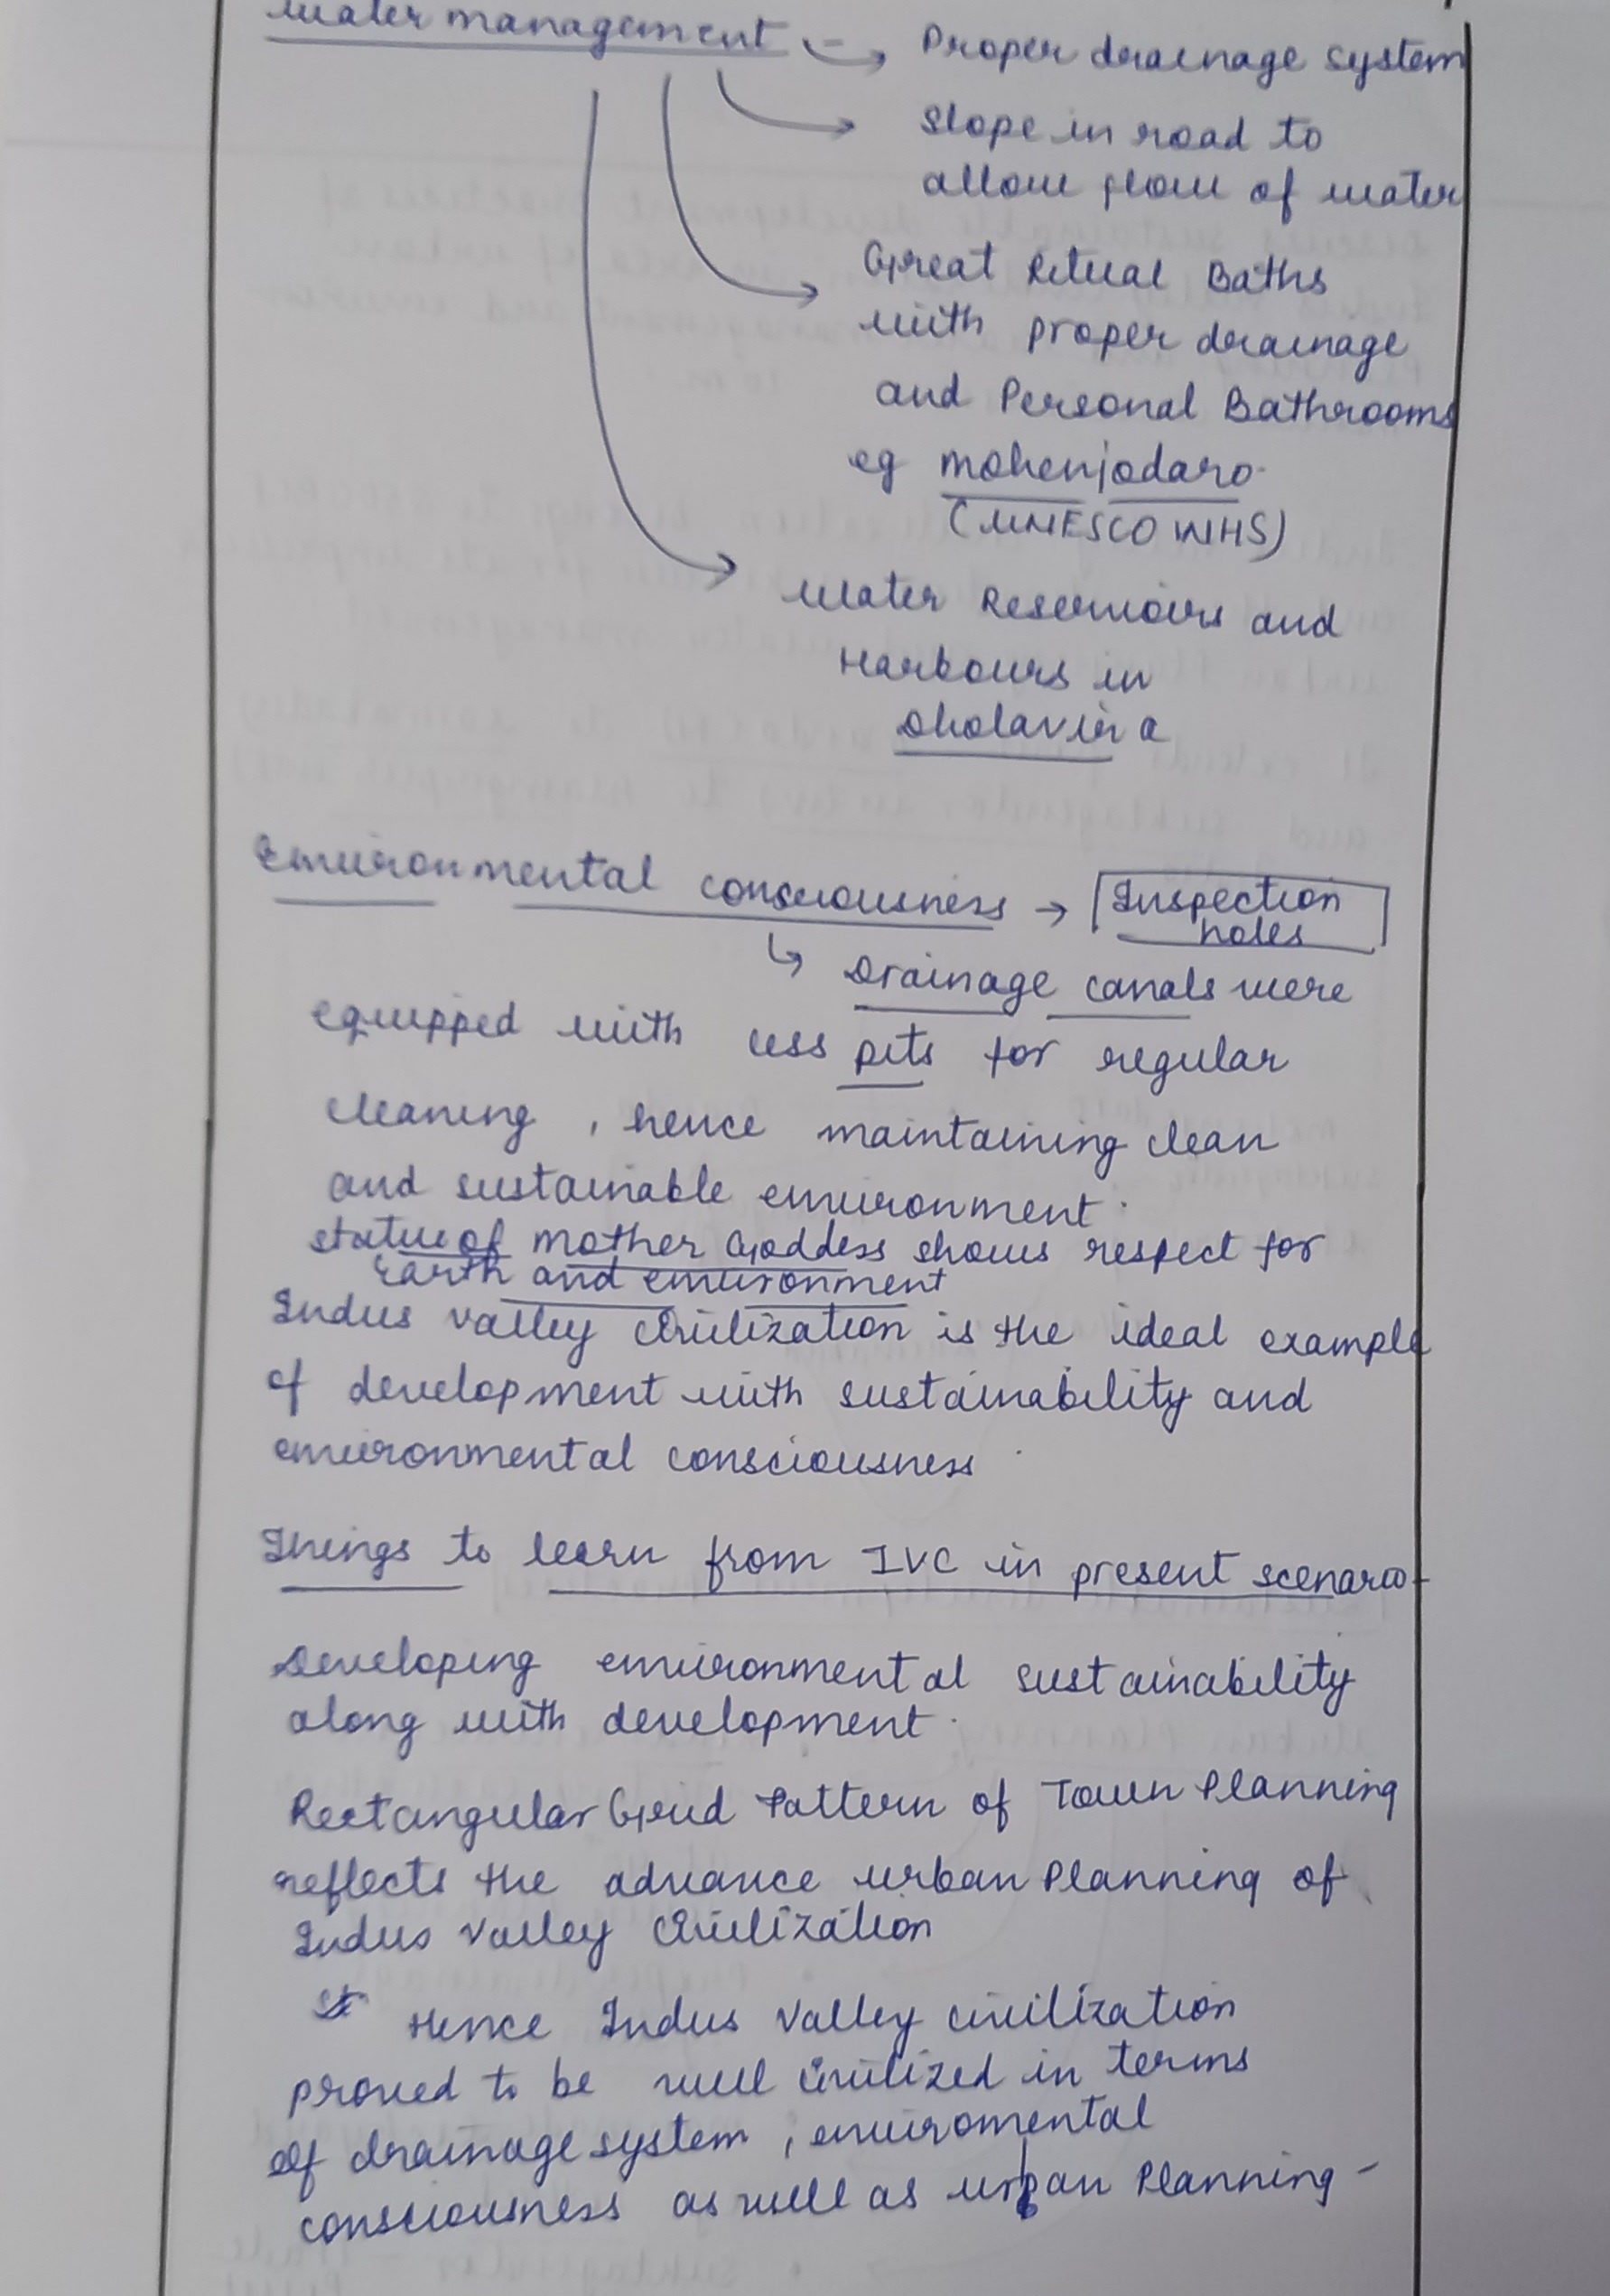 Water management - → Proper drainage system
Slope in road to
allow flow of water
Great Ritual Baths
with proper drainage
and Personal Bathrooms
eg Mohenjodaro.
(UNESCO WHS)
Water Reservoirs and
Harbours in
Dholavira
Environmental consciousness → Inspection
holes
↳ Drainage canals were
equipped with cess pits for regular
cleaning, hence maintaining clean
and sustainable environment.
statue of mother Goddess shows respect for
Earth and environment
Indus Valley Civilization is the ideal example
of development with sustainability and
environmental consciousness.
Things to learn from IVC in present scenario -
Developing environmental sustainability
along with development.
Rectangular Grid Pattern of Town Planning
reflects the advance urban Planning of
Indus Valley Civilization
Hence Indus Valley civilization
proved to be well civilized in terms
of drainage system, enviromental
consciousness as well as urban Planning -